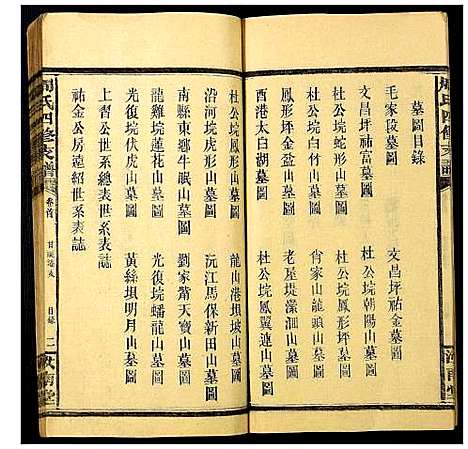 周氏四修支譜
墓圖目錄
毛家段墓圖
文昌坪祐富墓圖 文昌坪祐金墓圖
杜公垸蛇形山墓圖 杜公垸朝陽山墓圖
杜公垸白竹山墓圖 杜公垸鳳形坪墓圖
鳳形坪金盆山墓圖 肖家山龍形山墓圖
酉港太白湖墓圖 老屋堤漯湖山墓圖
杜公垸鳳翼連山墓圖
周氏四修支譜 卷首 目錄 二 汝南堂
杜公垸獅形山墓圖 龍山港垻坡山墓圖
沿河垸虎形山墓圖 沅江馬保新田山墓圖
南縣東鄉牛眠山墓圖 劉家黹天寶山墓圖
龍雞垸蓮花山墓圖 光復垸蟠龍山墓圖
光復垸伏虎山墓圖 黃絲垻明月山墓圖
上習公世系總表世系表誌
祐金公房遠紹世系表誌